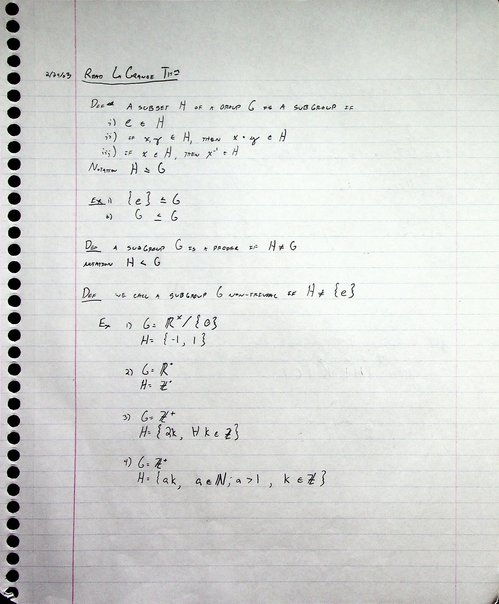 2/21/03 READ LA GRANGE THM
DEF A SUBSET H OF A GROUP G IS A SUBGROUP IF
i) e ∈ H
ii) IF x, y ∈ H, THEN x · y ∈ H
iii) IF x ∈ H, THEN x⁻¹ ∈ H
NOTATION H ≤ G
EX 1) {e} ≤ G
2) G ≤ G
DEF A SUBGROUP G IS A PROPER IF H ≠ G
NOTATION H < G
DEF WE CALL A SUBGROUP G NON-TRIVIAL IF H ≠ {e}
EX 1) G = ℝˣ/{0}
H = {-1, 1}
2) G = ℝ⁺
H = ℤ⁺
3) G = ℤ⁺
H = {2k, ∀ k ∈ ℤ}
4) G = ℤ⁺
H = {ak, a ∈ ℕ; a > 1, k ∈ ℤ}